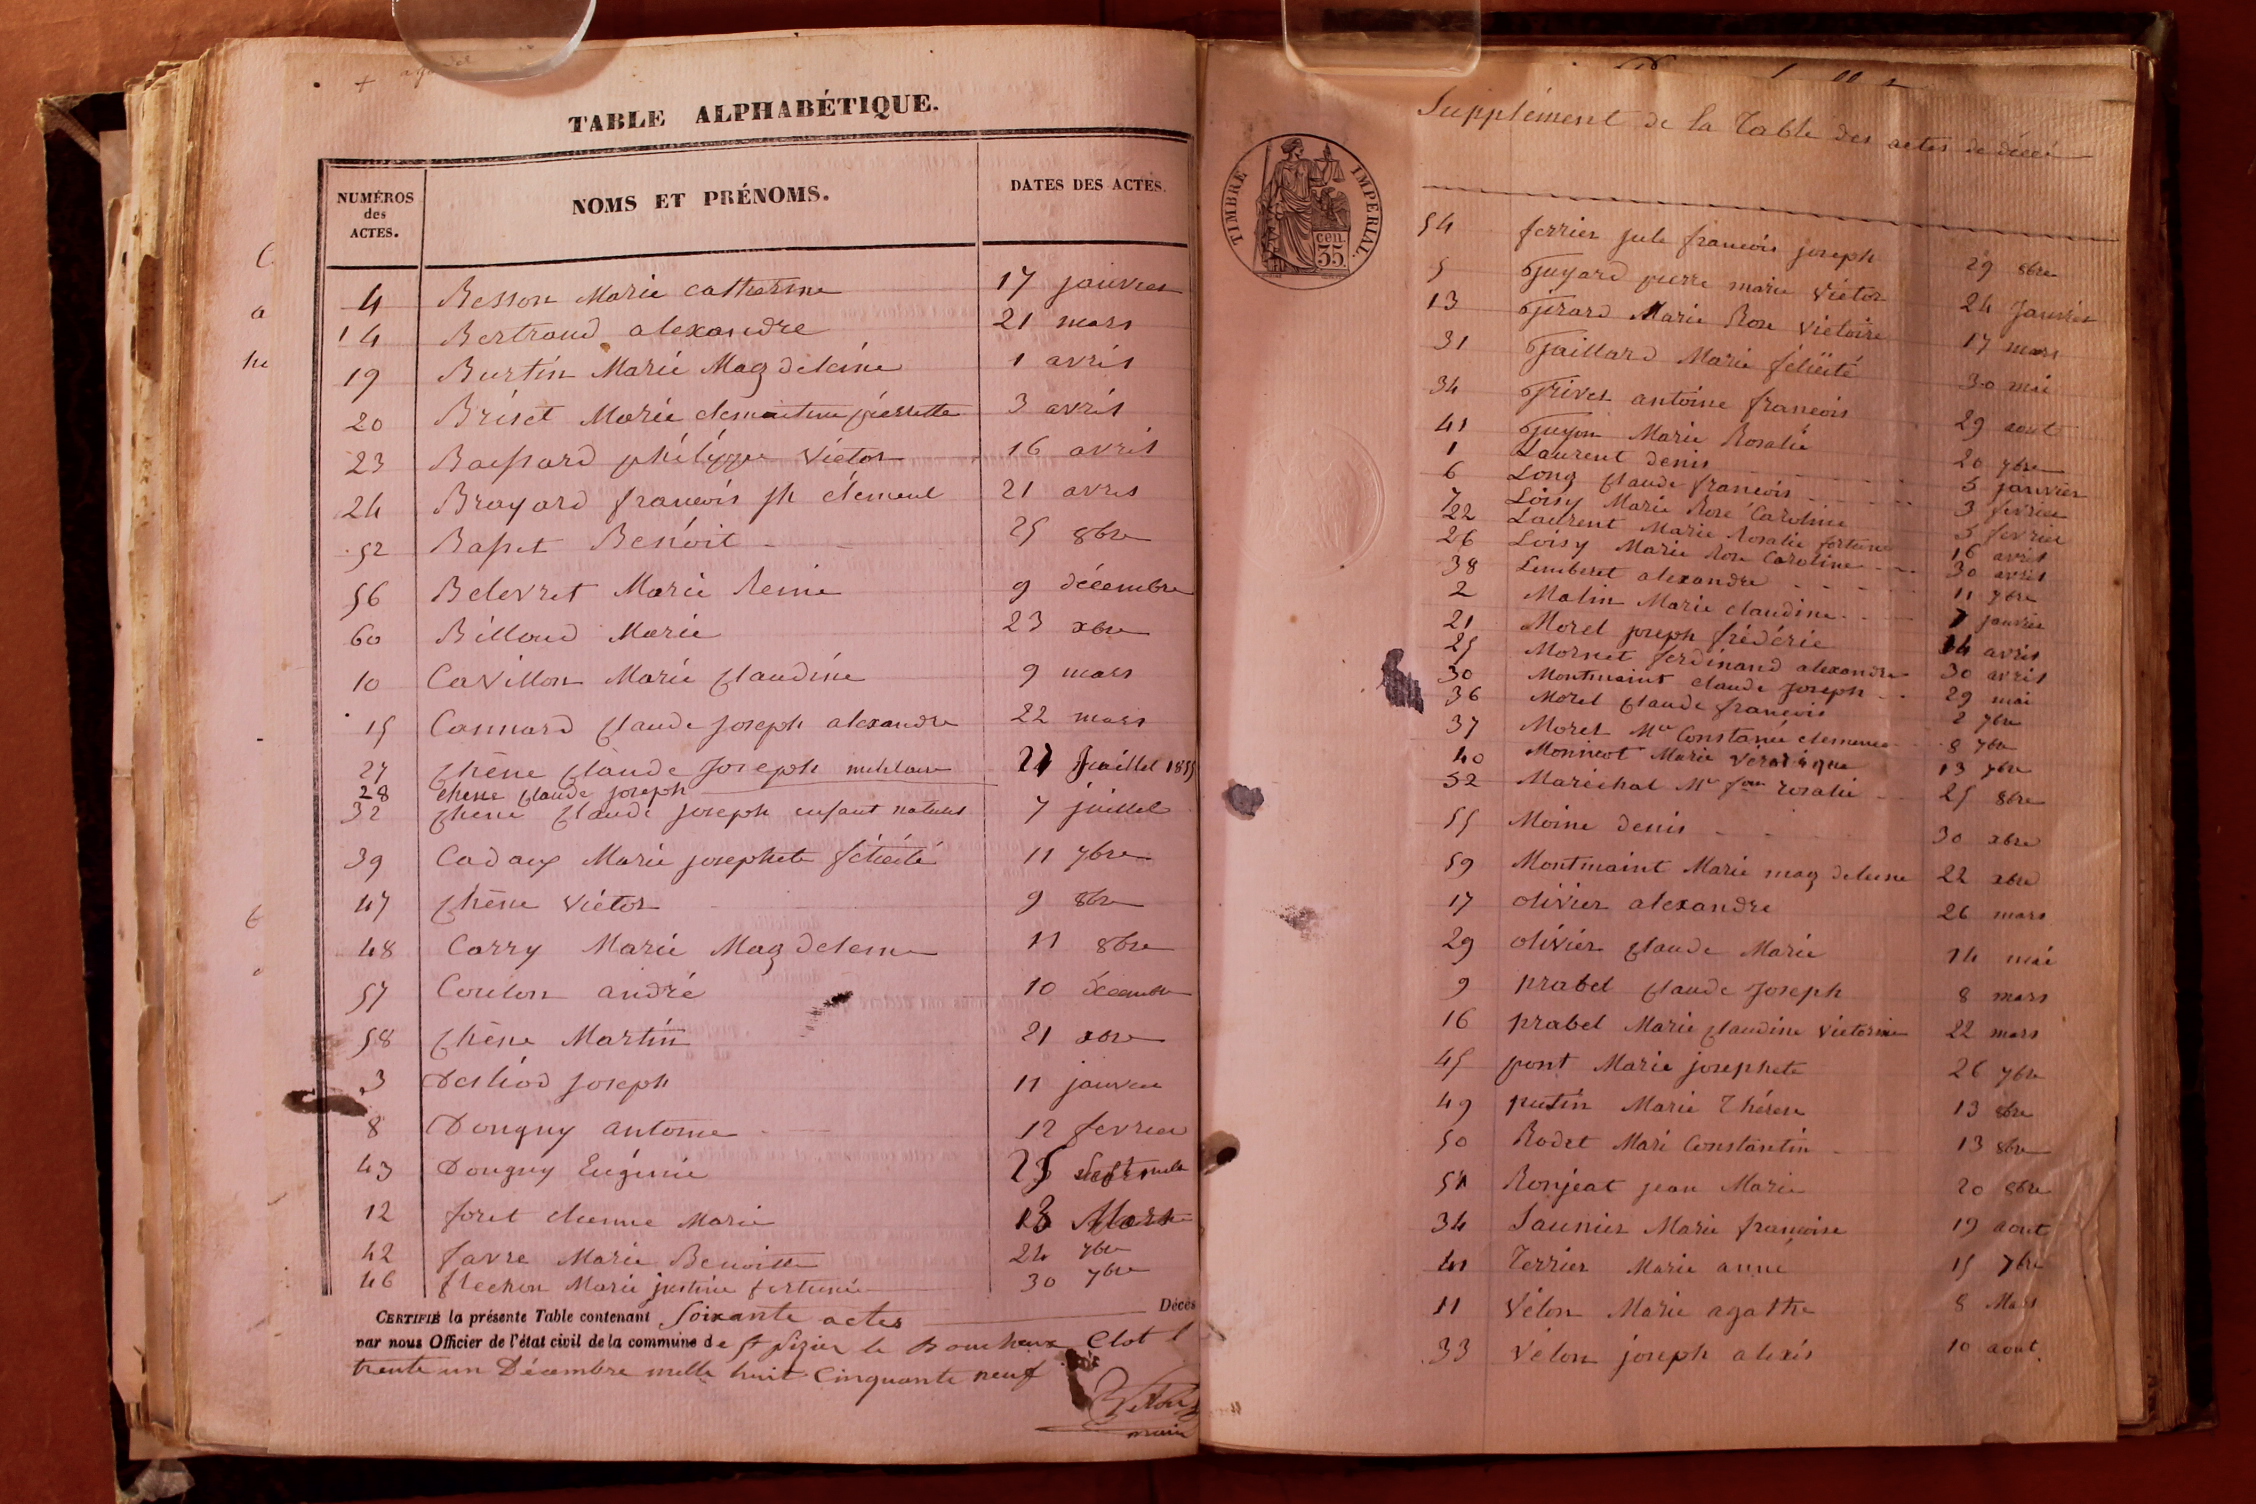 TABLE ALPHABÉTIQUE.
NUMÉROS des ACTES. NOMS ET PRÉNOMS. DATES DES ACTES.
4 Besson Marie catherine 17 janvier
14 Bertraud alexandre 21 mars
19 Burtin Marie Magdeleine 1 avril
20 Briset Marie clementine pierrette 3 avril
23 Bassard philippe Victor 16 avril
24 Brayard francois jh clément 21 avril
52 Basset Benoit 25 8bre
56 Belevret Marie Reine 9 décembre
60 Billoud Marie 23 xbre
10 Cavillon Marie Claudine 9 mars
15 Cannard Claude Joseph alexandre 22 mars
27 Chêne Claude Joseph militaire 21 Juillet 1855
28 chene Claude joseph
32 Chene Claude Joseph enfant naturel 7 juillet
39 Cadaux Marie josephete félicité 11 7bre
47 Chêne Victor 9 8bre
48 Carry Marie Magdeleine 11 8bre
57 Coulon andré 10 décembre
58 Chêne Martin 21 xbre
3 Desliod Joseph 11 janvier
8 Dougny antoine 12 fevrier
43 Dougny Eugénie 25 septembre
12 foret etienne Marie 13 Mars
42 favre Marie Benoitte 24 7bre
46 flechon Marie justine fortunée 30 7bre
CERTIFIÉ la présente Table contenant Soixante actes Décès
par nous Officier de l'état civil de la commune de St Nizier le Bouchoux Clot l
trente un Décembre mille huit Cinquante neuf
maire
TIMBRE IMPERIAL.
35 cen.
Supplément de la Table des actes de décès
54 ferrier jule francois joseph 29 8bre
5 Guyard pierre marie Victor 24 Janvier
13 Girard Marie Rose Victoire 17 mars
31 Gaillard Marie félicité 30 mai
34 Grivet antoine francois 29 aout
41 Guyon Marie Rosalie 20 7bre
1 Laurent denis 5 janvier
6 Long Claude francois 3 fevrier
7 Loisy Marie Rose Caroline 5 fevrier
22 Laurent Marie Rosalie fortune 16 avril
26 Loisy Marie Rose Caroline 30 avril
38 Lemberet alexandre 11 7bre
2 Malin Marie claudine 7 janvier
21 Morel joseph frédéric 14 avril
25 Mornet ferdinand alexandre 30 avril
30 Montmaint Claude Joseph 29 mai
36 Morel Claude francois 2 7bre
37 Morel Mie Constance clemence 8 7bre
40 Monnicot Marie Véronique 13 7bre
52 Maréchal Mie fçoise rosalie 25 8bre
55 Moine denis 30 xbre
59 Montmaint Marie magdeleine 22 xbre
17 olivier alexandre 26 mars
29 olivier Claude Marie 14 mai
9 prabel Claude Joseph 8 mars
16 prabel Marie Claudine Victorine 22 mars
45 pont Marie josephete 26 7bre
49 putin Marie Thérese 13 8bre
50 Rodet Mari Constantin 13 8bre
51 Ronjeat jean Marie 20 8bre
34 Saunier Marie francoise 19 aout
41 Terrier Marie anne 15 7bre
11 Vélon Marie agathe 8 Mars
33 Vélon joseph alexis 10 aout